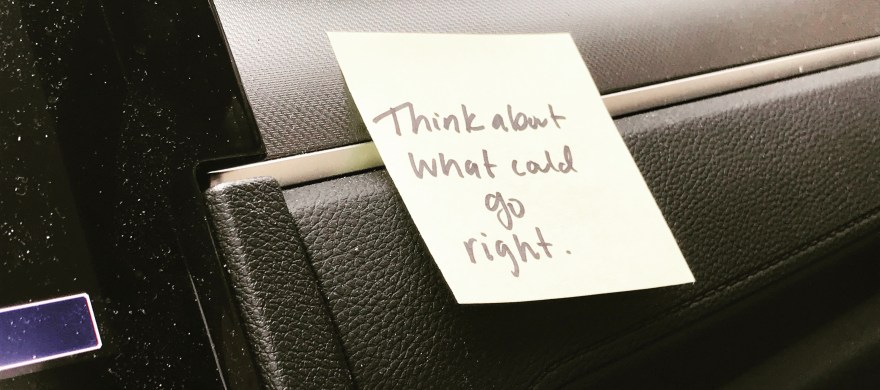 Think about
What could
go
right.